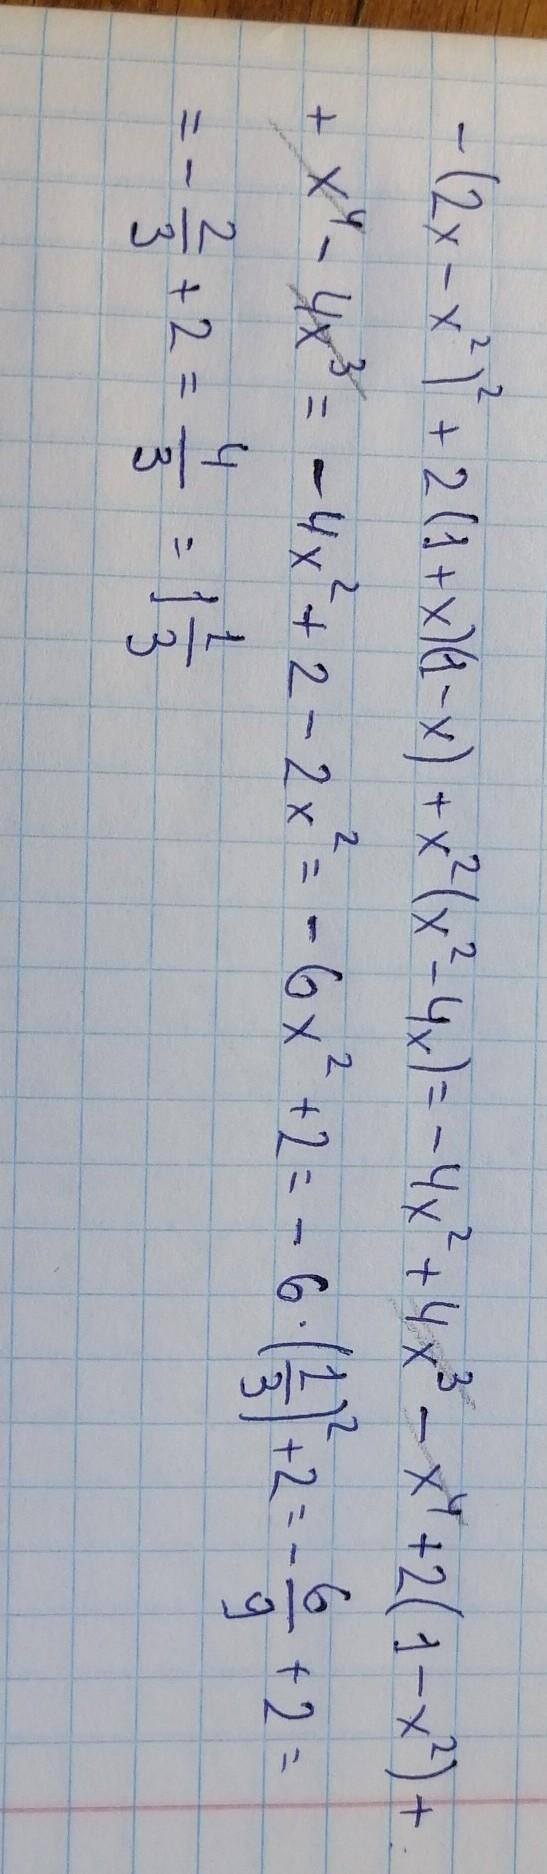 -(2x-x²)²+2(1+x)(1-x)+x²(x²-4x)=-4x²+4x³-x⁴+2(1-x²)+
+x⁴-4x³=-4x²+2-2x²=-6x²+2=-6·(1/3)²+2=-6/9+2=
=-2/3+2=4/3=1 1/3